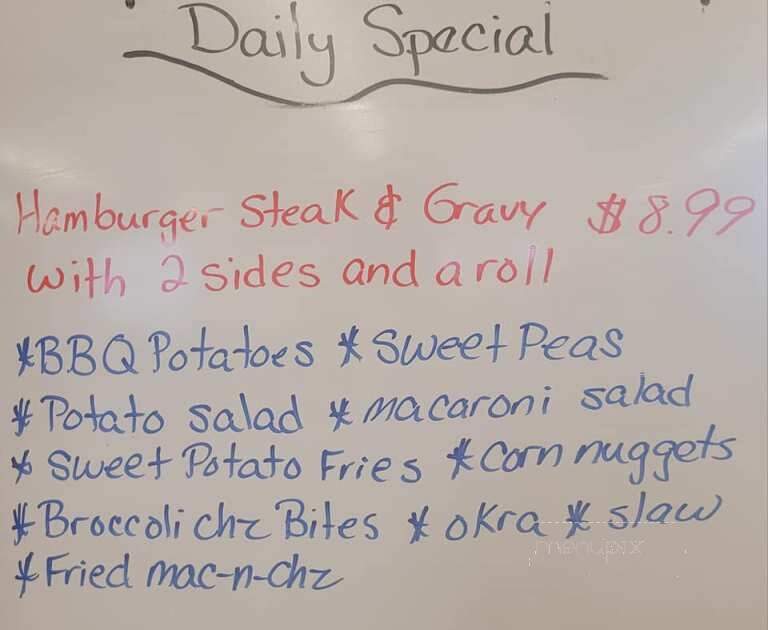 Daily Special
Hamburger Steak & Gravy $8.99
with 2 sides and a roll
*BBQ Potatoes *Sweet Peas
*Potato salad *macaroni salad
*Sweet Potato Fries *corn nuggets
*Broccoli chz Bites *okra *slaw
menupix
*Fried mac-n-chz